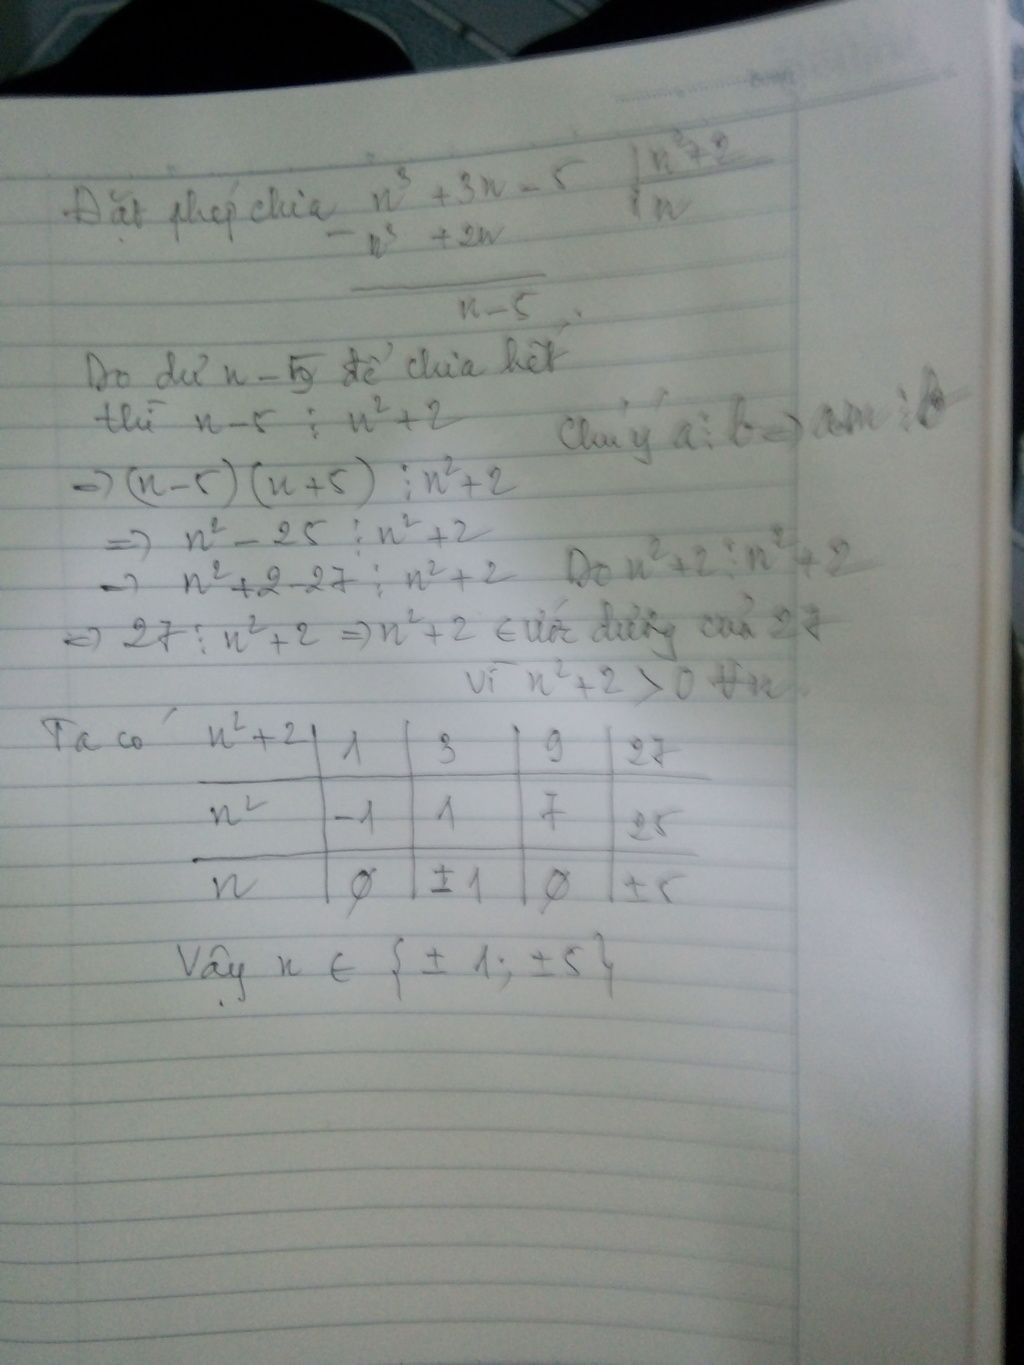 Đặt phép chia n³ + 3n - 5 | n² + 2
- n³ + 2n | n
n - 5
Do dư n - 5 để chia hết
thì n - 5 ⋮ n² + 2 Chú ý a ⋮ b => am ⋮ b
=> (n - 5)(n + 5) ⋮ n² + 2
=> n² - 25 ⋮ n² + 2
=> n² + 2 - 27 ⋮ n² + 2 Do n² + 2 ⋮ n² + 2
=> 27 ⋮ n² + 2 => n² + 2 ∈ ước dương của 27
vì n² + 2 > 0 ∀n
Ta có n² + 2 | 1 | 3 | 9 | 27
n² | -1 | 1 | 7 | 25
n | ∅ | ±1 | ∅ | ±5
Vậy n ∈ {±1; ±5}